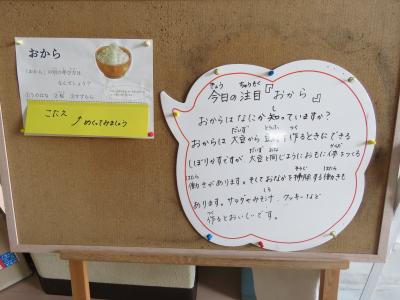 おから
「おから」の別の呼び方は
なんでしょう？
こたえ
めくってみましょう
きょう ちゅうもく
今日の注目『おから』
し
おからはなにか知っていますか？
だいず とうふ つく
おからは大豆から豆腐を作るときにできる
だいず おな からだ
しぼりかすですが、大豆と同じようにおもに体をつくる
はたら そうじ はたら
働きがあります。そしておなかを掃除する働きも
あります。サラダやみそ汁、クッキーなど
つく
作るとおいしいです。